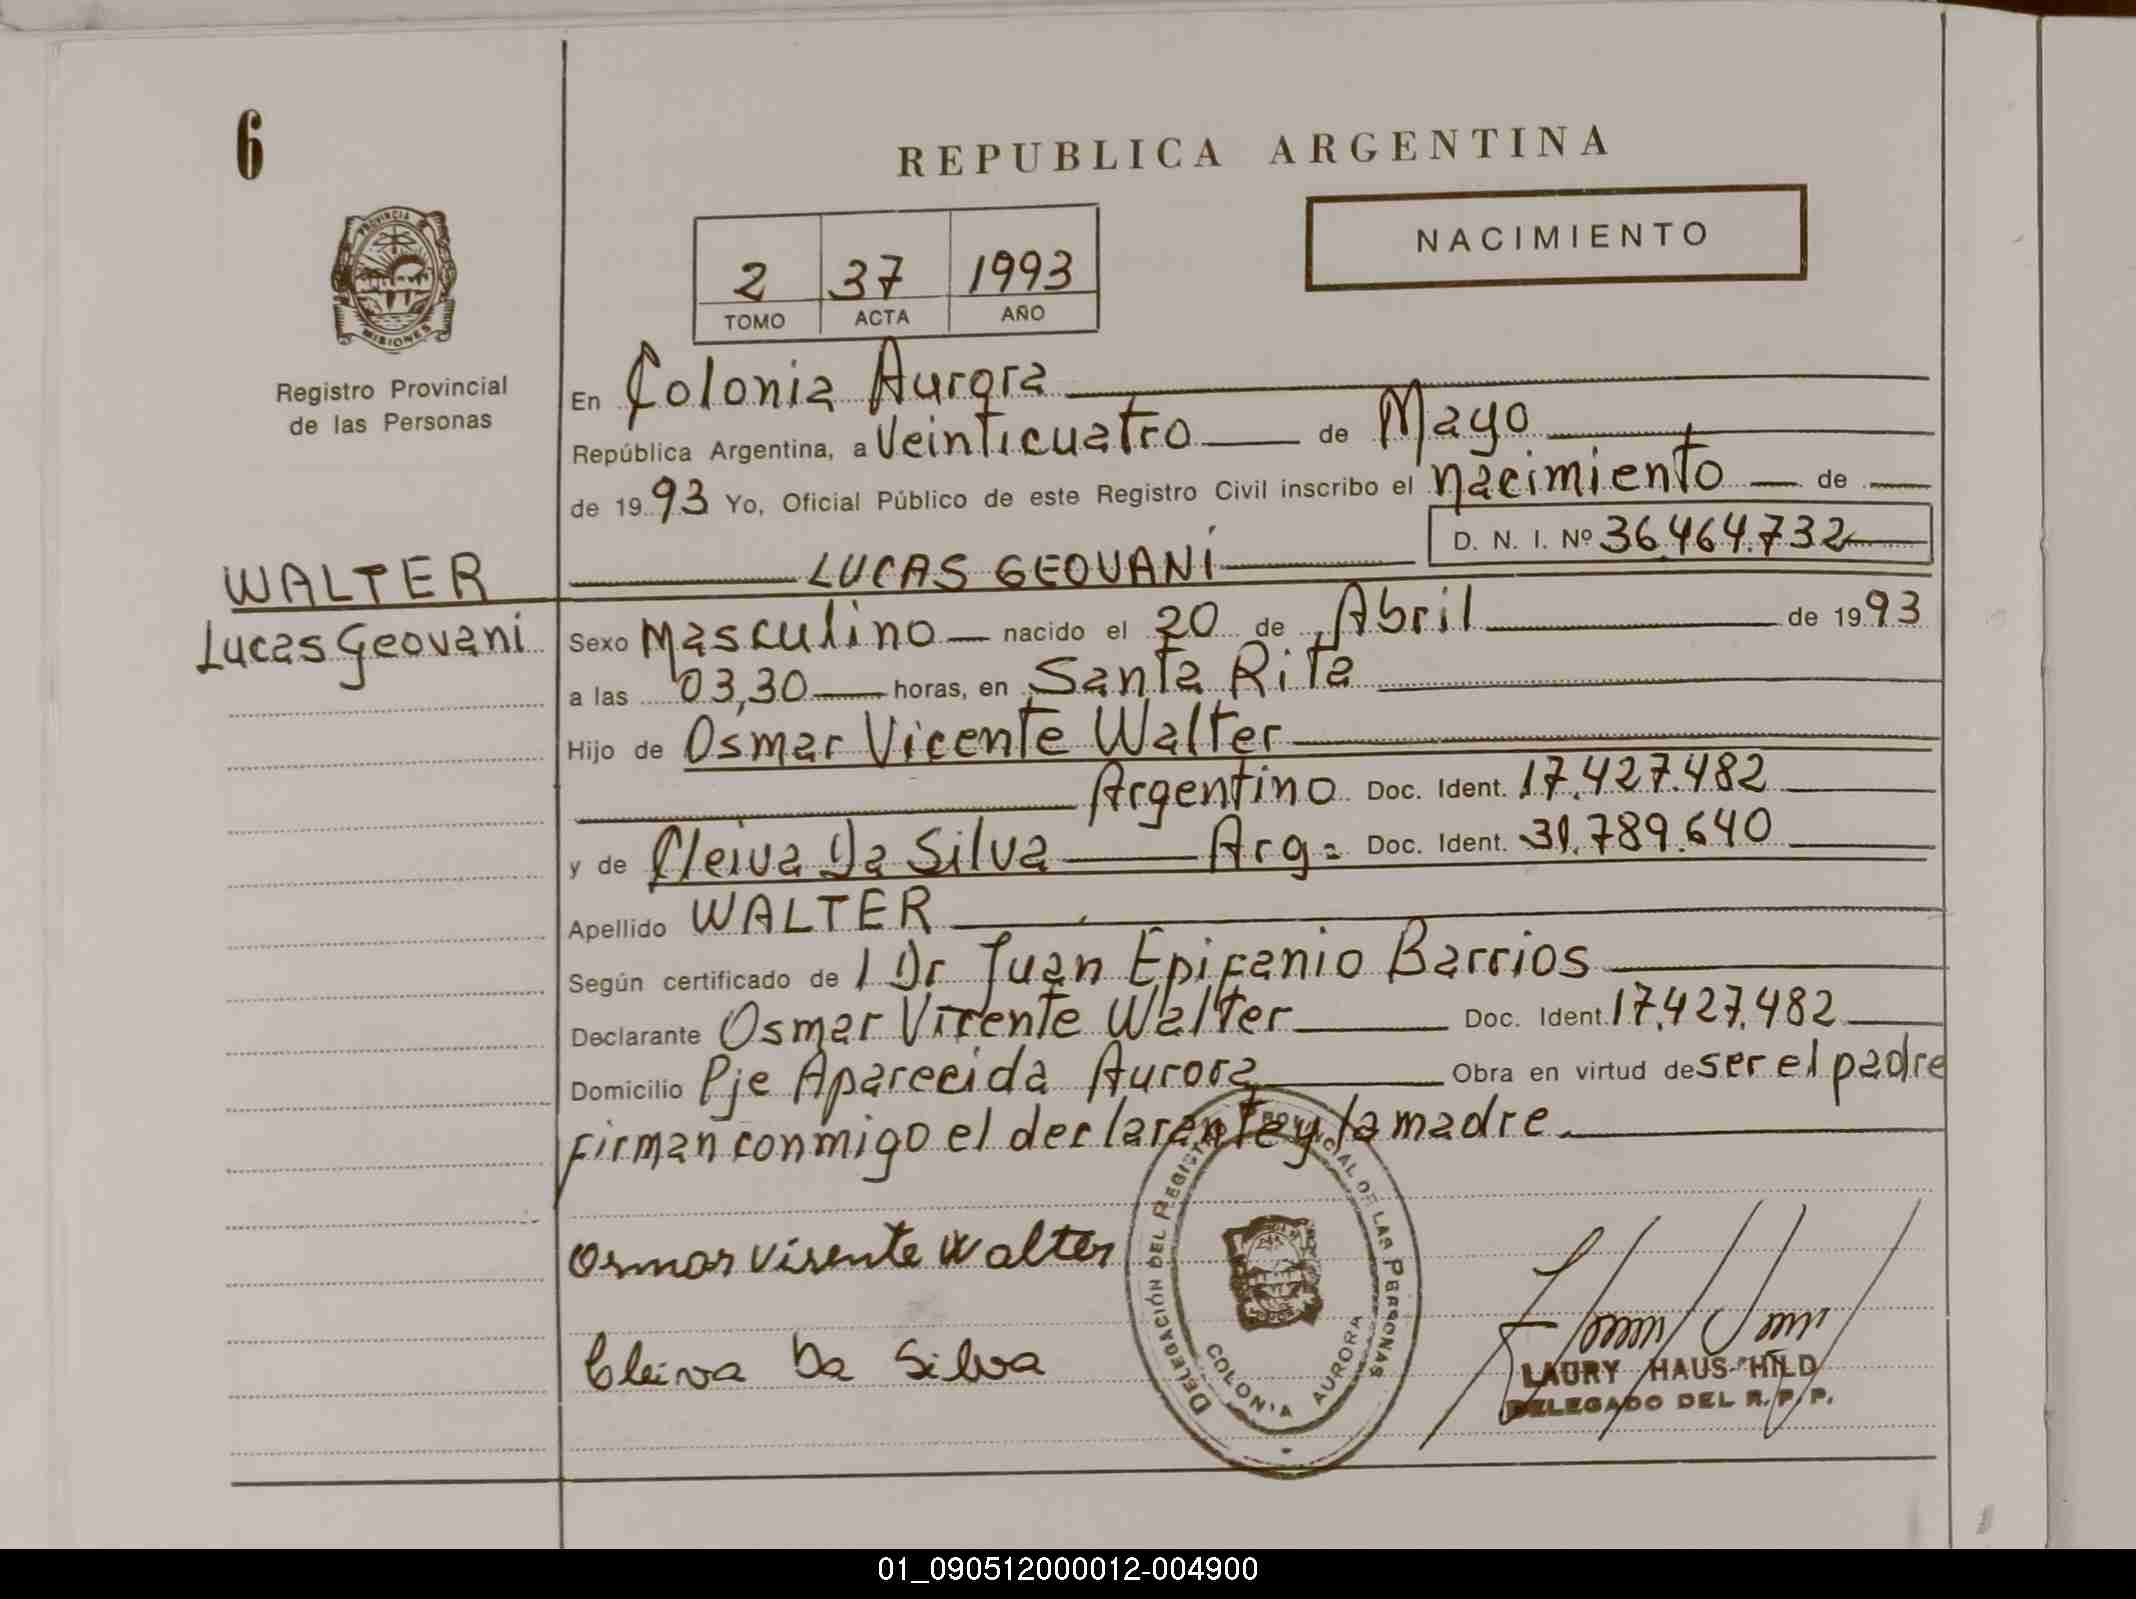 6
REPUBLICA ARGENTINA
NACIMIENTO
2 37 1993
TOMO ACTA AÑO
PROVINCIA
MISIONES
Registro Provincial
de las Personas
En Colonia Aurora
República Argentina, a Veinticuatro de Mayo
de 19 93 Yo, Oficial Público de este Registro Civil inscribo el nacimiento de
D. N. I. Nº 36.464.732
LUCAS GEOVANI
WALTER
Lucas Geovani
Sexo Masculino nacido el 20 de Abril de 19 93
a las 03,30 horas, en Santa Rita
Hijo de Osmar Vicente Walter
Argentino Doc. Ident. 17.427.482
y de Cleiva Da Silva Arg= Doc. Ident. 31.789.640
Apellido WALTER
Según certificado de l Dr Juan Epifanio Barrios
Declarante Osmar Vicente Walter Doc. Ident. 17.427.482
Domicilio Pje Aparecida Aurora Obra en virtud de ser el padre
firman conmigo el declarante y la madre.
Osmar Visente Walter
Cleiva Da Silva
DELEGACIÓN DEL REGISTRO PROVINCIAL DE LAS PERSONAS
COLONIA AURORA
LAURY HAUSCHILD
DELEGADO DEL R.P.P.
01_090512000012-004900